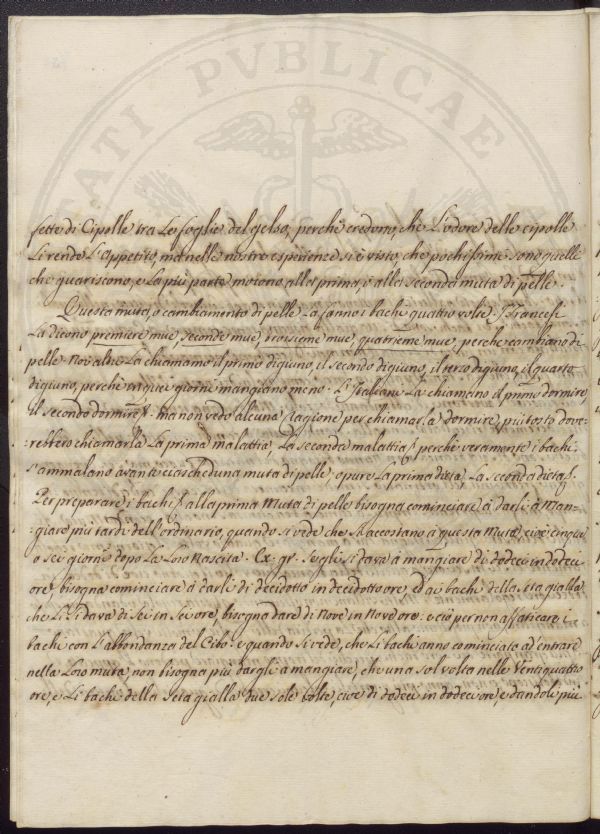 TATI PVBLICAE
fette di Cipolle tra Le foglie del gelso, perche credono, che L'odore delle cipolle
Li rende L'Appetito, ma nelle nostre esperienze si è visto, che pochissimi sono quelli
che guariscono, e La più parte morono alla prima, ò alla seconda muta di pelle.
Questa muta, o cambiamento di pelle La fanno i bachi quattro volte. I Francesi
La dicono premiere mue, seconde mue, troisieme mue, quatrieme mue, perche cambiano di
pelle. Noi altri La chiamamo il primo digiuno, il secondo digiuno, il terzo digiuno, il quarto
digiuno, perche in que' giorni mangiano meno. Li Italiani La chiamano il primo dormire,
il secondo dormire &. ma non vedo alcuna Ragione per chiamarla dormire, piutosto dove-
:rebbero chiamarla La prima malattia, La seconda malattia &. perche veramente i bachi
s'ammalano avanti ciascheduna muta di pelle, opure La prima dieta, La seconda dieta &.
Per preparare i bachi alla prima Muta di pelle bisogna cominciare à darli à Man-
:giare più tardi dell'ordinario, quando si vede che s'accostano à questa Muta, cioè cinque,
o sei giorni dopo La Loro Nascita. Ex. gr. se gli si dava à mangiare di dodeci in dodeci
ore, bisogna cominciare à darli di decidotto in deciddotto ore, ed ai bachi della seta gialla
che Li si dava di sei in sei ore, bisogna dare di Nove in Nove ore: e ciò per non affaticare i
bachi con L'abbondanza del Cibo: e quando si vede, che Li bachi anno cominciato ad entrare
nella Loro muta, non bisogna più dargli à mangiare, che una sol volta nelle Ventiquattro
ore, e Li bachi della Seta gialla due sole volte, cioe di dodeci in dodeci ore, e dandoli più